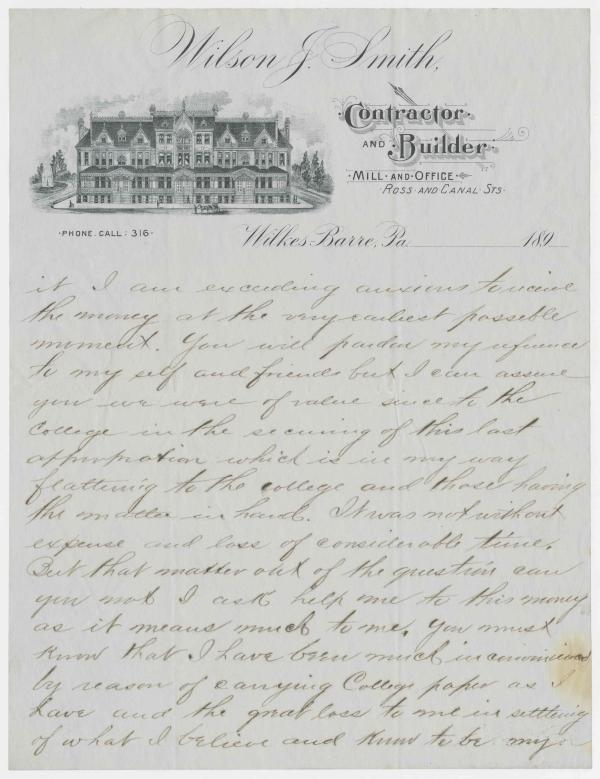 Wilson J. Smith,
Contractor
AND Builder
MILL AND OFFICE
ROSS AND CANAL STS.
PHONE CALL: 316
Wilkes-Barre, Pa. 189
it I am exceeding anxious to receive
the money at the very earliest possible
moment. You will pardon my refrence
to my self and friends but I can assure
you we were of value since to the
College in the securing of this last
appropration which is in my way
flattering to the college and those having
the matter in hand. It was not without
expense and loss of considerable time.
But that matter out of the question can
you not I ask help me to this money
as it means much to me. You must
know that I have been much inconvenienced
by reason of carrying College paper as I
have and the great loss to me in settling
of what I believe and know to be my